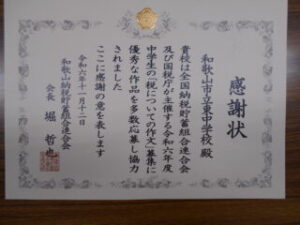 感謝状
和歌山市立東中学校 殿
貴校は全国納税貯蓄組合連合会
及び国税庁が主催する令和六年度
中学生の「税についての作文」募集に
優秀な作品を多数応募し協力
されました
ここに感謝の意を表します
令和六年十一月十二日
和歌山納税貯蓄組合連合会
会長 堀 哲也